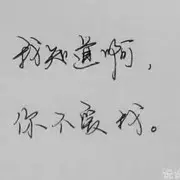 我知道啊，
你不爱我。